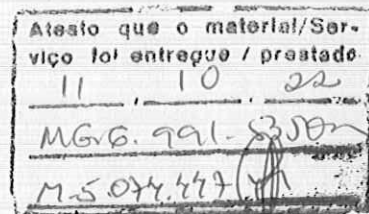 Atesto que o material/Ser-
viço foi entregue / prestado
11 , 10 , 22
MG.6.991.
M.5.074.447